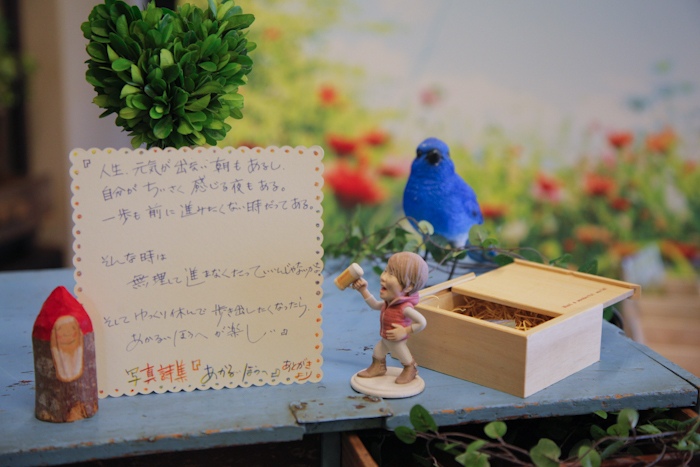 『人生、元気が出ない朝もあるし、
自分がちいさく感じる夜もある。
一歩も前に進みたくない時だってある。
そんな時は
無理して進まなくたっていいんじゃないかな
そしてゆっくり休んで歩き出したくなったら、
あかるいほうへが楽しい』
写真詩集『あかるいほうへ』あとがきより